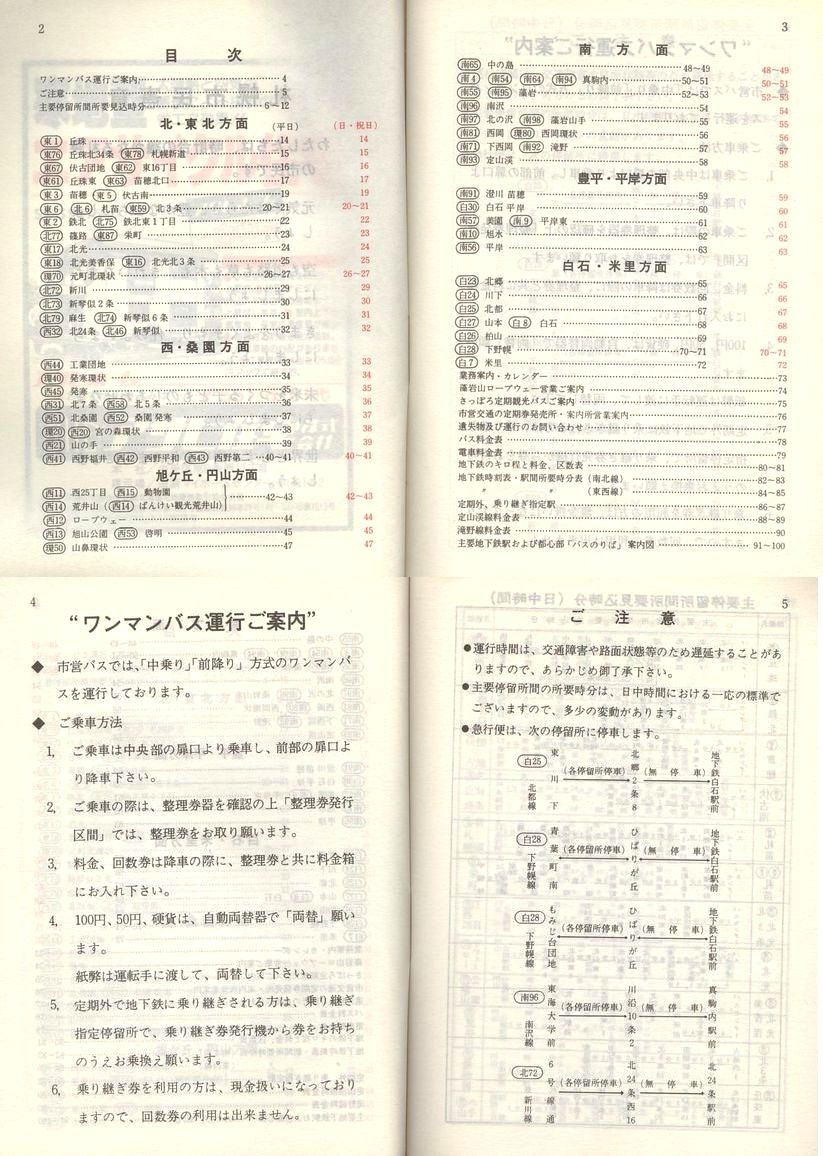 2
目 次
ワンマンバス運行ご案内 4
ご注意 5
主要停留所間所要見込時分 6~12
北・東北方面 (平日) (日・祝日)
東1 丘珠 14 14
東76 丘珠北34条 東78 札幌新道 15 15
東67 伏古団地 東62 東16丁目 16 16
東61 丘珠東 東63 苗穂北口 17 17
東3 苗穂 東5 伏古南 19 19
東6 北6 札苗 東59 北3条 20~21 20~21
東2 鉄北 北75 鉄北東1丁目 22 22
北77 篠路 東87 栄町 23 23
東17 北光 24 24
東18 北光美香保 東16 北光北3条 25 25
環70 元町北環状 26~27 26~27
北72 新川 29 29
北73 新琴似2条 30 30
北79 麻生 北74 新琴似6条 31 31
西32 北24条 北46 新琴似 32 32
西・桑園方面
西44 工業団地 33 33
環40 発寒環状 34 34
西45 発寒 35 35
西31 北7条 西58 北5条 36 36
西51 北桑園 西52 桑園発寒 37 37
環20 西20 宮の森環状 38 38
西21 山の手 39 39
西41 西野福井 西42 西野平和 西43 西野第二 40~41 40~41
旭ケ丘・円山方面
西11 西25丁目 西15 動物園
西14 荒井山(西14 ばんけい観光荒井山) 42~43 42~43
西12 ロープウェー 44 44
西13 旭山公園 西53 啓明 45 45
環50 山鼻環状 47 47
3
南方面
南65 中の島 48~49 48~49
南4 南54 南64 南94 真駒内 50~51 50~51
南55 南95 藻岩 52~53 52~53
南96 南沢 54 54
南97 北の沢 南98 藻岩山手 55 55
南81 西岡 環80 西岡環状 56 56
南71 下西岡 南92 滝野 57 57
南93 定山渓 58 58
豊平・平岸方面
南91 澄川 苗穂 59 59
白30 白石 平岸 60 60
南57 美園 南9 平岸東 61 61
南10 旭水 62 62
南56 平岸 63 63
白石・米里方面
白23 北郷 65 65
白24 川下 66 66
白25 北都 67 67
白27 山本 白8 白石 68 68
白26 柏山 69 69
白28 下野幌 70~71 70~71
白7 米里 72 72
業務案内・カレンダー 73
藻岩山ロープウェー営業ご案内 74
さっぽろ定期観光バスご案内 75
市営交通の定期券発売所・案内所営業案内 76
遺失物及び運行のお問い合わせ 77
バス料金表 78
電車料金表 79
地下鉄のキロ程と料金、区数表 80~81
地下鉄時刻表・駅間所要時分表(南北線) 82~83
〃 〃 (東西線) 84~85
定期外、乗り継ぎ指定駅 86~87
定山渓線料金表 88~89
滝野線料金表 90
主要地下鉄駅および都心部「バスのりば」案内図 91~100
4
“ワンマンバス運行ご案内”
◆ 市営バスでは、「中乗り」「前降り」方式のワンマンバ
スを運行しております。
◆ ご乗車方法
1, ご乗車は中央部の扉口より乗車し、前部の扉口よ
り降車下さい。
2, ご乗車の際は、整理券器を確認の上「整理券発行
区間」では、整理券をお取り願います。
3, 料金、回数券は降車の際に、整理券と共に料金箱
にお入れ下さい。
4, 100円、50円、硬貨は、自動両替器で「両替」願い
ます。
紙弊は運転手に渡して、両替して下さい。
5, 定期外で地下鉄に乗り継ぎされる方は、乗り継ぎ
指定停留所で、乗り継ぎ券発行機から券をお持ち
のうえお乗換え願います。
6, 乗り継ぎ券を利用の方は、現金扱いになっており
ますので、回数券の利用は出来ません。
5
ご注意
●運行時間は、交通障害や路面状態等のため遅延することがあ
りますので、あらかじめ御了承下さい。
●主要停留所間の所要時分は、日中時間における一応の標準で
ございますので、多少の変動があります。
●急行便は、次の停留所に停車します。
白25 北都線 東川下 (各停留所停車) 北郷2条8 (無停車) 地下鉄白石駅前
白28 下野幌線 青葉町南 (各停留所停車) ひばりが丘 (無停車) 地下鉄白石駅前
白28 下野幌線 もみじ台団地 (各停留所停車) ひばりが丘 (無停車) 地下鉄白石駅前
南96 南沢線 東海大学前 (各停留所停車) 川沿10条2 (無停車) 真駒内駅前
北72 新川線 6号線通 (各停留所停車) 北24条西16 (無停車) 北24条駅前